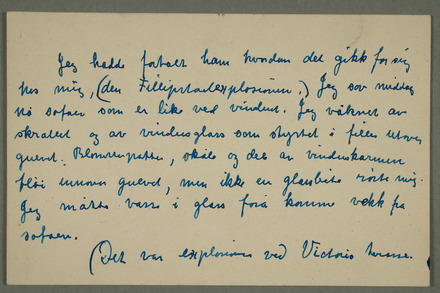 Jeg hadde fortalt ham hvordan det gikk for sig
hos mig, (den Fillipstadexplosionen.) Jeg sov middag
på sofaen som er like ved vinduet. Jeg våknet av
skrallet og av vindusglass som styrtet i filler utover
guvet. Blomsterpotter, skåle og det av vinduskarmen
fløi innover gulvet, men ikke en glassbite rørte mig.
Jeg måtte vasse i glass forå komme vekk fra
sofaen.
(Det var explosionen ved Victoria terrasse.